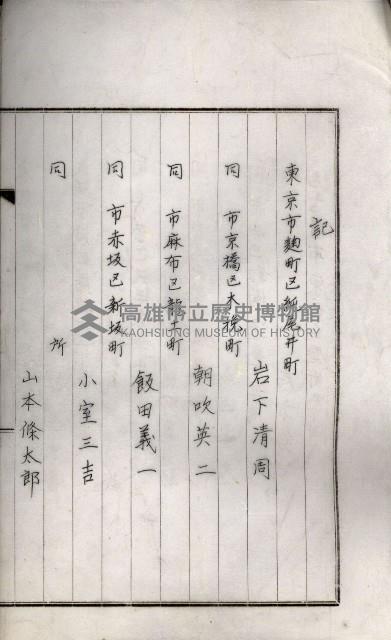 記
東京市麹町区紀尾井町
岩下清周
同 市京橋区木挽町
朝吹英二
同 市麻布区新士町
飯田義一
同 市赤坂区新坂町
小室三吉
同 所
山本條太郎
高雄市立歷史博物館
KAOHSIUNG MUSEUM OF HISTORY